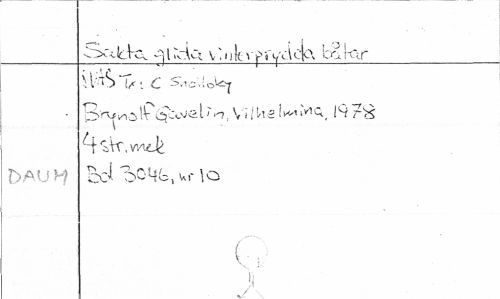 Sakta glida vinterprydda båtar
Tr: C Snoilsky
Brynolf Gavelin, Vilhelmina, 1978
4 str, mek
DAUM Bd 3046, nr 10